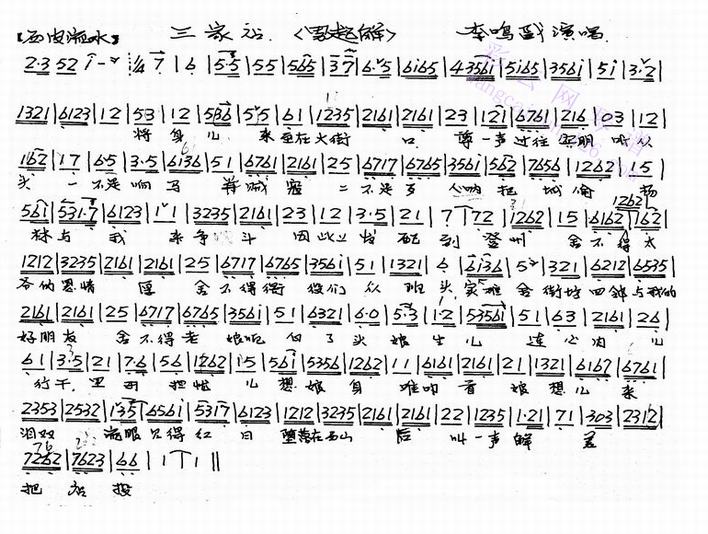 【西皮流水】 三家店 《男起解》 李鸣盛演唱
2·3 52 i - 1/4 7 | 6 | 5·5 | 55 | 565 | 37 | 6·5 | 6i65 | 4356i | 5i65 | 356i | 5i | 3·2 |
1321 | 6123 | 12 | 53 | 12 | 536 | 55 | 61 | 1235 | 2161 | 2161 | 23 | 121 | 6761 | 216 | 03 | 12 |
将身儿 来至在大街 口 尊一声过往宾朋听从
162 | 17 | 65 | 3·5 | 6136 | 51 | 6761 | 2161 | 25 | 6717 | 6765 | 356i | 562 | 7656 | 1262 | 15 |
头 一不是响马 并贼寇 二不是 人呐把城偷 杨
561 | 531·7 | 6123 | 11 | 3235 | 2161 | 23 | 12 | 3·5 | 21 | 7 | 772 | 1262 | 15 | 6162 | 162 |
林与我来争斗 因此上发配到登州 舍不得太
1212 | 3235 | 2161 | 2161 | 25 | 6717 | 6765 | 356i | 51 | 1321 | 6 | 6136 | 5 | 321 | 6212 | 6535 |
爷的恩情 厚 舍不得衙役们众班头 实难舍街坊四邻与我的
2161 | 2161 | 25 | 6717 | 6765 | 356i | 51 | 6321 | 6·0 | 5·3 | 1·2 | 5356i | 51 | 63 | 2161 | 26 |
好朋友 舍不得老娘呃白了头 娘生儿 连心肉 儿
61 | 3·5 | 21 | 7·6 | 56 | 1262 | 15 | 561 | 5356 | 1262 | 11 | 6161 | 2161 | 21 | 1321 | 6167 | 6761 |
行千里母担忧 儿想娘身难叩首 娘想儿来
2353 | 2532 | 135 | 656i | 5317 | 6123 | 1212 | 3235 | 2161 | 2161 | 22 | 1235 | 1·21 | 71 | 303 | 2312 |
泪双 流眼见得红日 坠落在西山 后 叫一声解差
7262 | 7623 | 66 | 1 | 1 ||
把店投